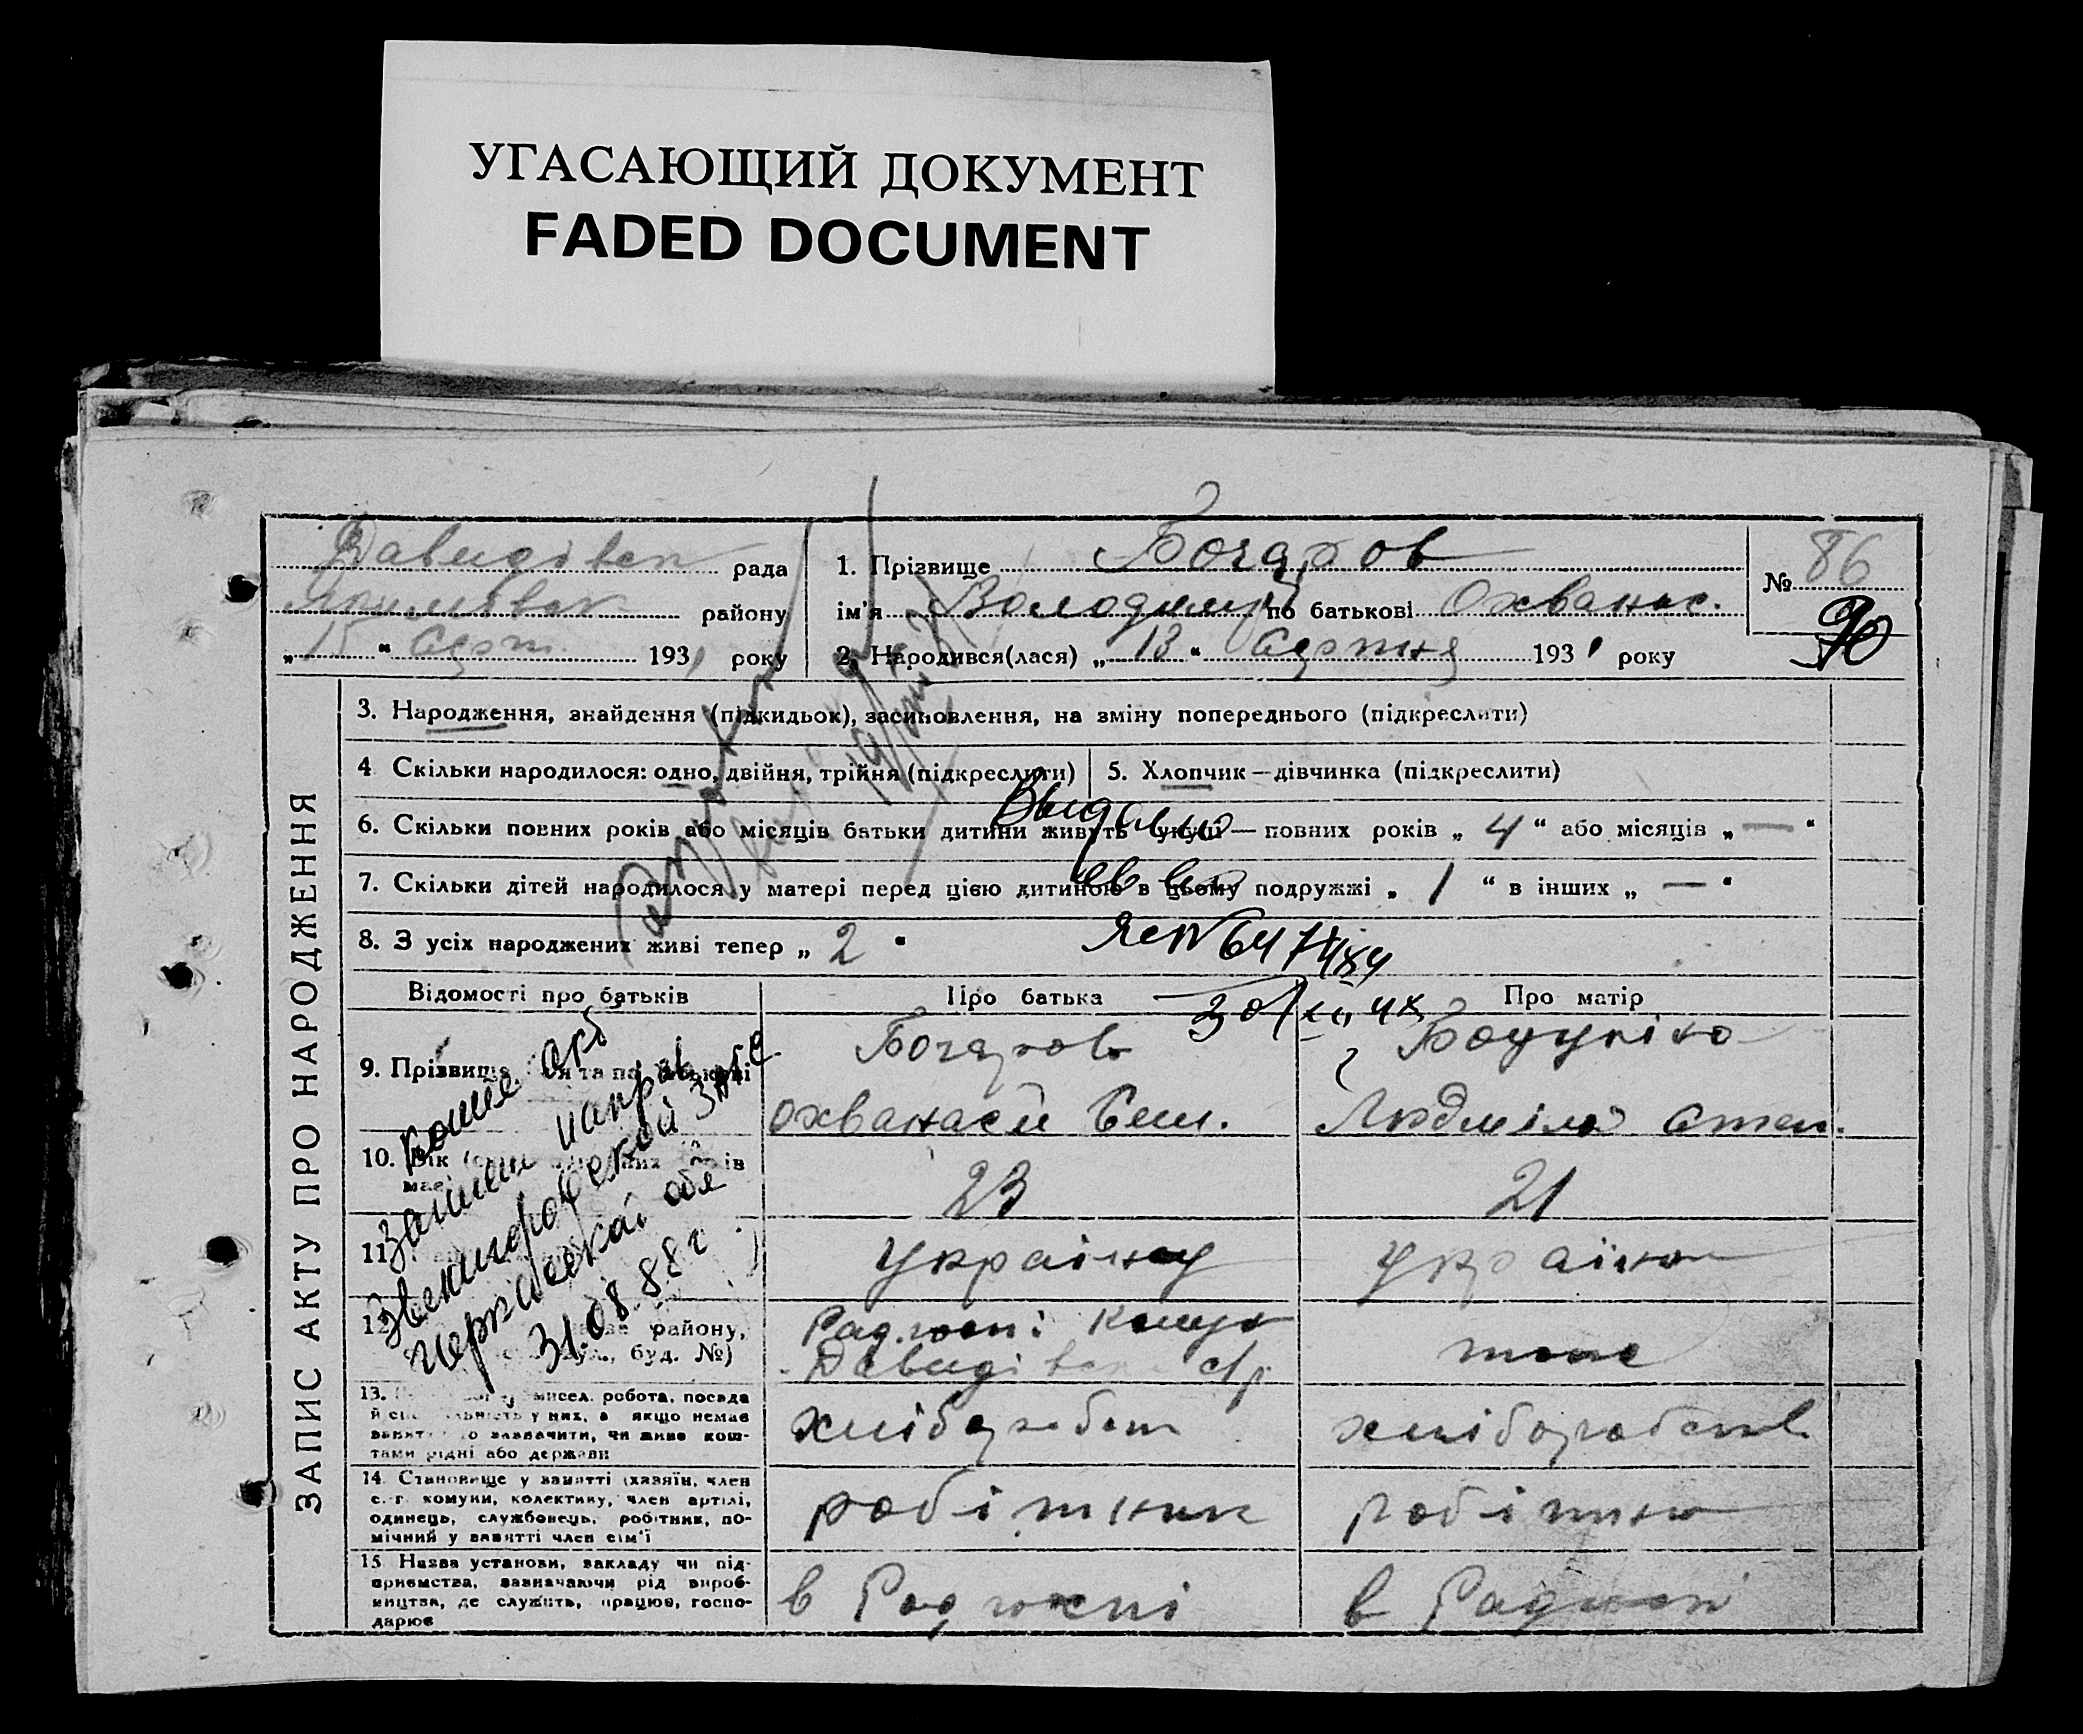 УГАСАЮЩИЙ ДОКУМЕНТ
FADED DOCUMENT
Давидівск рада
району
„ 15 “ серп. 1931 року
1. Прізвище Бочаров
ім'я Володимир по батькові Охванас.
2. Народився(лася) „ 13 “ серпня 1931 року
№ 86
90
ЗАПИС АКТУ ПРО НАРОДЖЕННЯ
3. Народження, знайдення (підкидьок), засиновлення, на зміну попереднього (підкреслити)
4 Скільки народилося: одно, двійня, трійня (підкреслити)
5. Хлопчик — дівчинка (підкреслити)
6. Скільки повних років або місяців батьки дитини живуть укупі — повних років „ 4 “ або місяців „ — “
7. Скільки дітей народилося у матері перед цією дитиною в цьому подружжі „ 1 “ в інших „ — “
8. З усіх народжених живі тепер „ 2 “
Выдано
Відомості про батьків
Про батька
Про матір
9. Прізвище та по батькові
Бочаров
Охванасій
Людміла Степ.
10. Вік
23
21
11
україну
україн
12 району,
буд. №)
Давидівск с/р
тоже
13. мисел. робота, посада
й у них, а якщо немає
зазначити, чи живе кош-
тами рідні або держави
хлібороб
хлібороб
14. Становище у занятті (хазяїн, член
с.-г. комуни, колективу, член артілі,
одинець, службовець, робітник, по-
мічний у занятті член сім'ї
робітник
робітниц
15 Назва установи, закладу чи під-
приємства, зазначаючи рід вироб-
ництва, де служить, працює, госпо-
дарює
в Радгоспі
в Радгосп
копие акт
записи направ
Звенигородский ЗАГС
Черкасской обл
31.08.88 г.